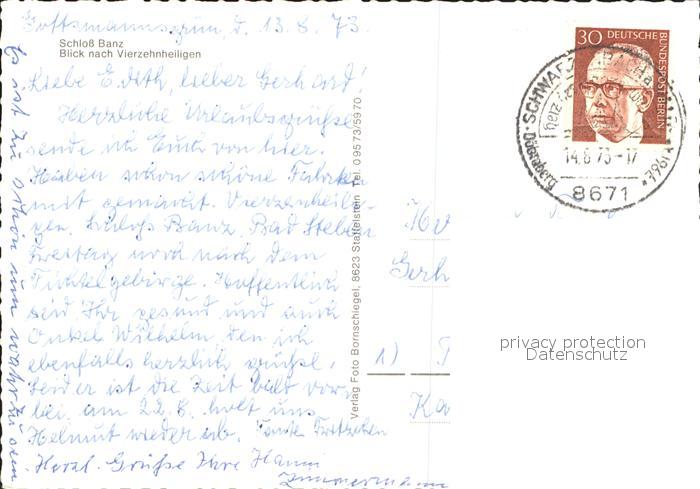 Gottsmannsgrün d. 13.8.73.
Schloß Banz
Blick nach Vierzehnheiligen
Liebe Edith, lieber Gerhard!
Herzliche Urlaubsgrüße
sende ich Euch von hier.
Haben schon schöne Fahrten
mit gemacht. Vierzenheili-
gen, Schloß Banz, Bad Steben
Freitag wird nach dem
Fichtelgebirge. Hoffentlich
seid Ihr gesund und auch
Onkel Wilhelm, den ich
ebenfalls herzlich grüße.
Leider ist die Zeit bald vor-
bei am 22.8. holt uns
Helmut wieder ab. Tante Fritzchen
Herzl. Grüße Ihre Hanni
Zimmermann
Es ist zu schön um wahr zu sein
Verlag Foto Bornschlegel, 8623 Staffelstein Tel. 09573/5970
30 DEUTSCHE
BUNDESPOST BERLIN
SCHWARZENBACH
Döbraberg
14.8.73-17
8671
Gerh
1)
Ka
privacy protection
Datenschutz